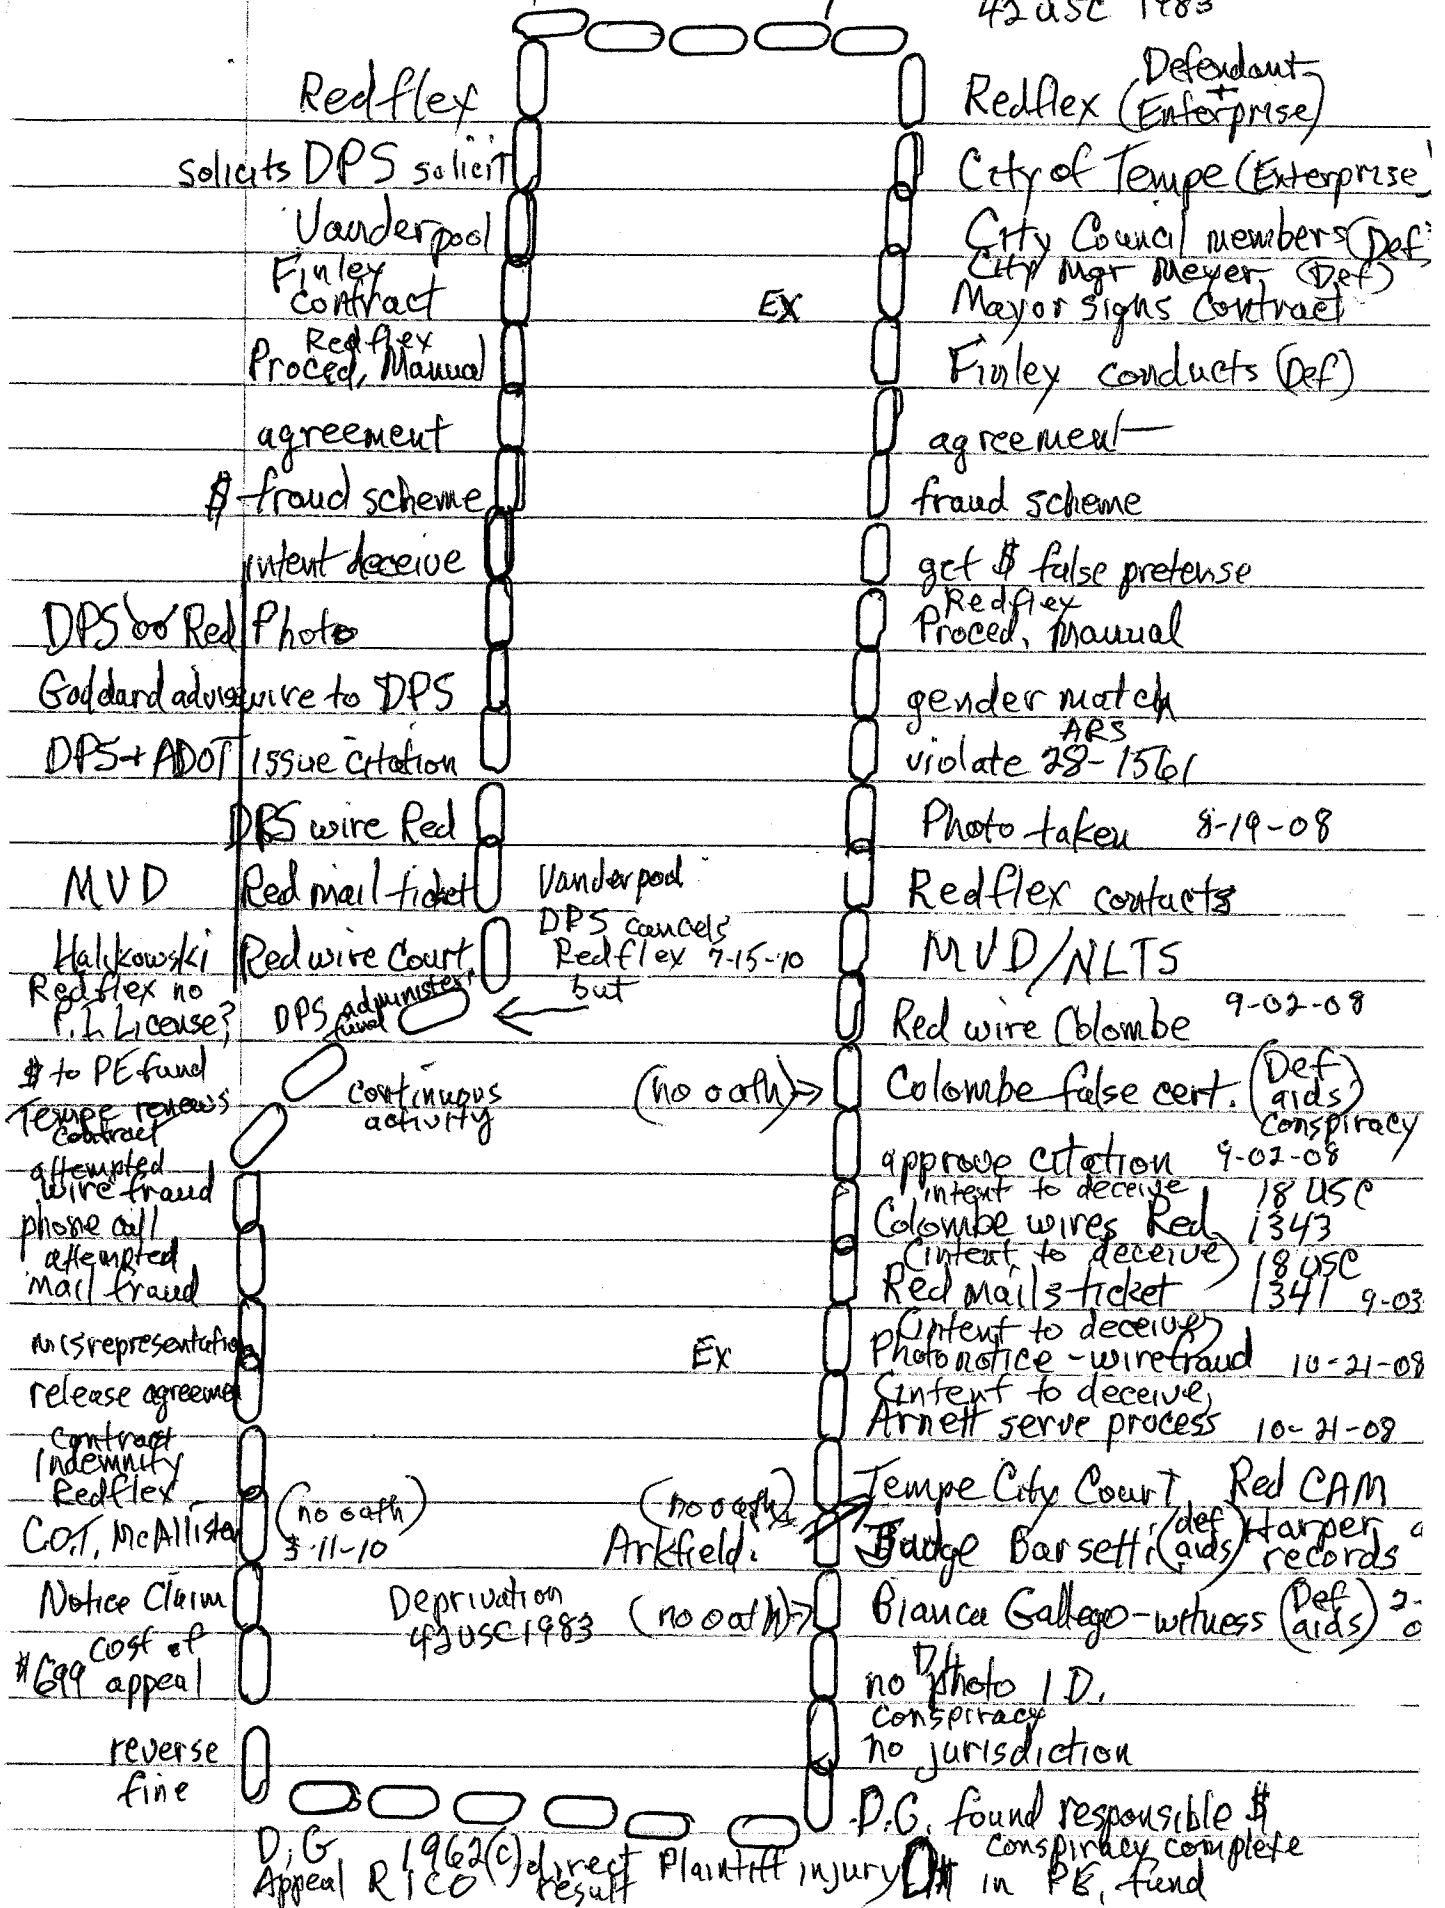 42 USC 1983
Redflex
solicits DPS solicit
Vanderpool
Finley
contract
Redflex
Proced, Manual
agreement
$ fraud scheme
intent deceive
DPS or Red Photo
Goddard advise wire to DPS
DPS + ADOT issue citation
DPS wire Red
MVD Red mail ticket
Halikowski Red wire Court
Redflex no
P.I. License?
DPS administer
fund
$ to PE fund
Tempe renews
contract
attempted
wire fraud
phone call
attempted
mail fraud
misrepresentation
release agreement
contract
Indemnity
Redflex
C.O.T. McAllister
Notice Claim
cost of
$699 appeal
reverse
fine
Vanderpool
DPS cancels
Redflex 7-15-10
but
continuous
activity
(no oath)
3-11-10
Deprivation
42 USC 1983
Ex
Defendant
+
Redflex (Enterprise)
City of Tempe (Enterprise
City Council members (Def)
City Mgr Meyer (Def)
Mayor signs contract
Finley conducts (Def)
agreement
fraud scheme
get $ false pretense
Redflex
Proced, Manual
gender match
ARS
violate 28-1561
Photo taken 8-19-08
Redflex contacts
MVD/NLTS
Red wire Colombe 9-02-08
(no oath) Colombe false cert. (Def aids)
conspiracy
approve citation 9-02-08
intent to deceive 18 USC
Colombe wires Red 1343
(intent to deceive) 18 USC
Red mails ticket 1341 9-03
(intent to deceive)
Ex Photo notice - wirefraud 10-21-08
(intent to deceive)
Arnett serve process 10-21-08
Tempe City Court Red CAM
(no oath)
Arkfield. Judge Barsetti (def aids) Harper
records
(no oath) Bianca Gallego - witness (Def aids) 2-
no photo I D.
conspiracy
no jurisdiction
D.G. found responsible $
conspiracy complete
in PE, fund
D.G 1962(c) direct Plaintiff injury
Appeal RICO result